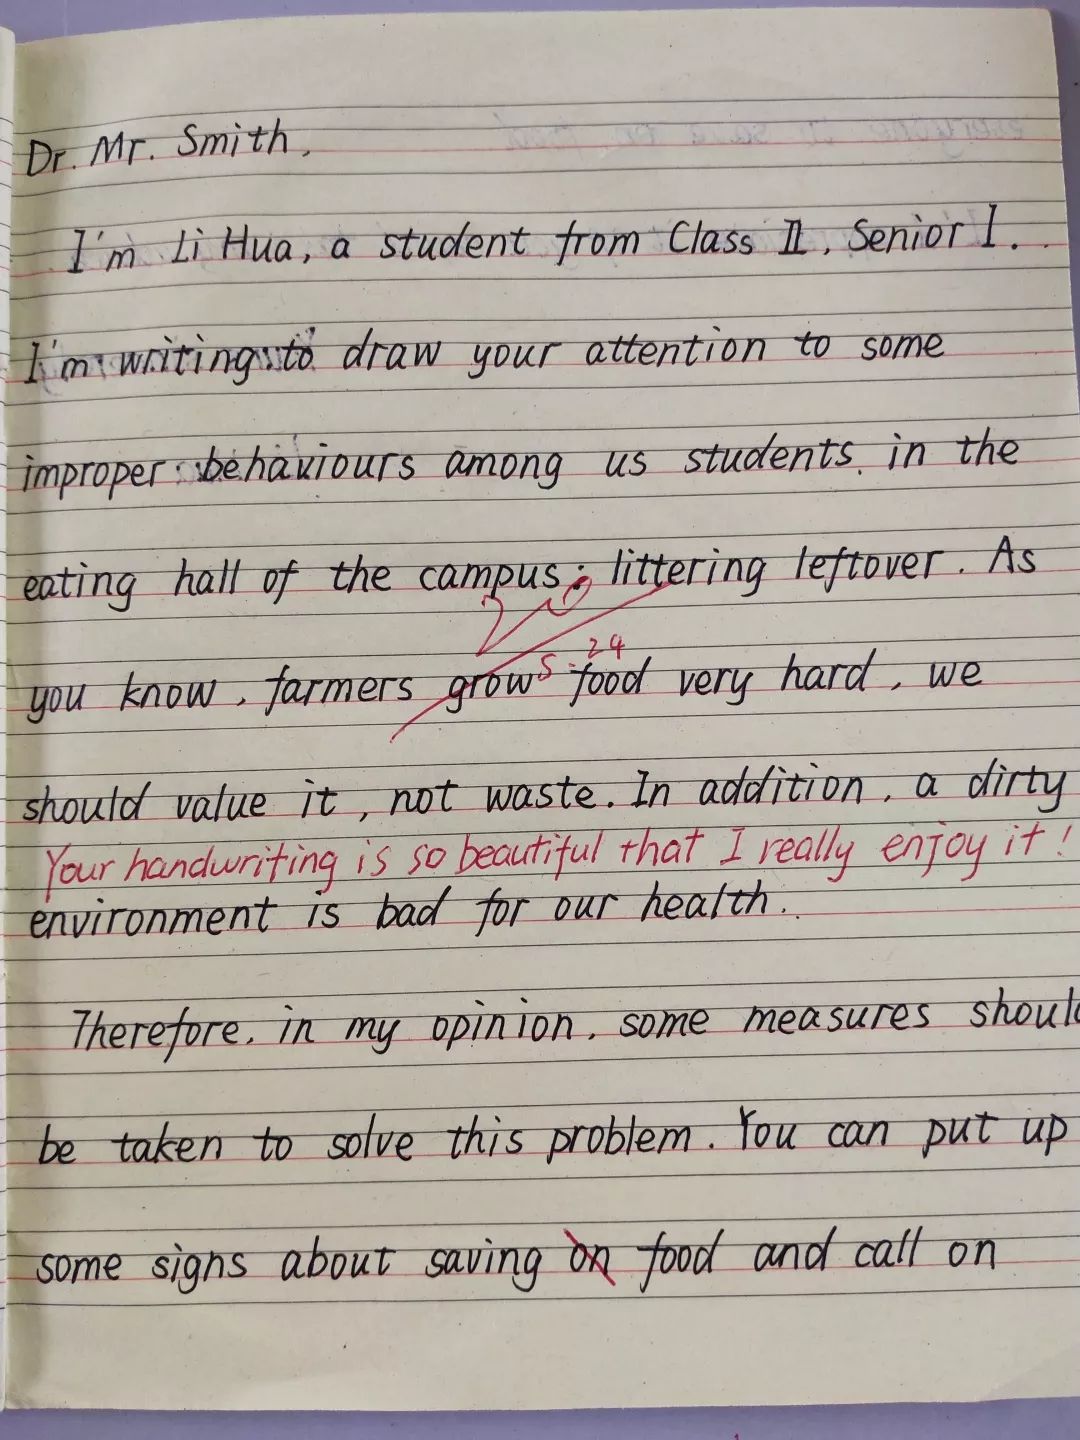 Dr. Mr. Smith,
I'm Li Hua, a student from Class II, Senior I.
I'm writing to draw your attention to some
improper behaviours among us students in the
eating hall of the campus: littering leftover. As
24
you know, farmers grow food very hard, we
should value it, not waste. In addition, a dirty
Your handwriting is so beautiful that I really enjoy it!
environment is bad for our health.
Therefore, in my opinion, some measures should
be taken to solve this problem. You can put up
some signs about saving on food and call on